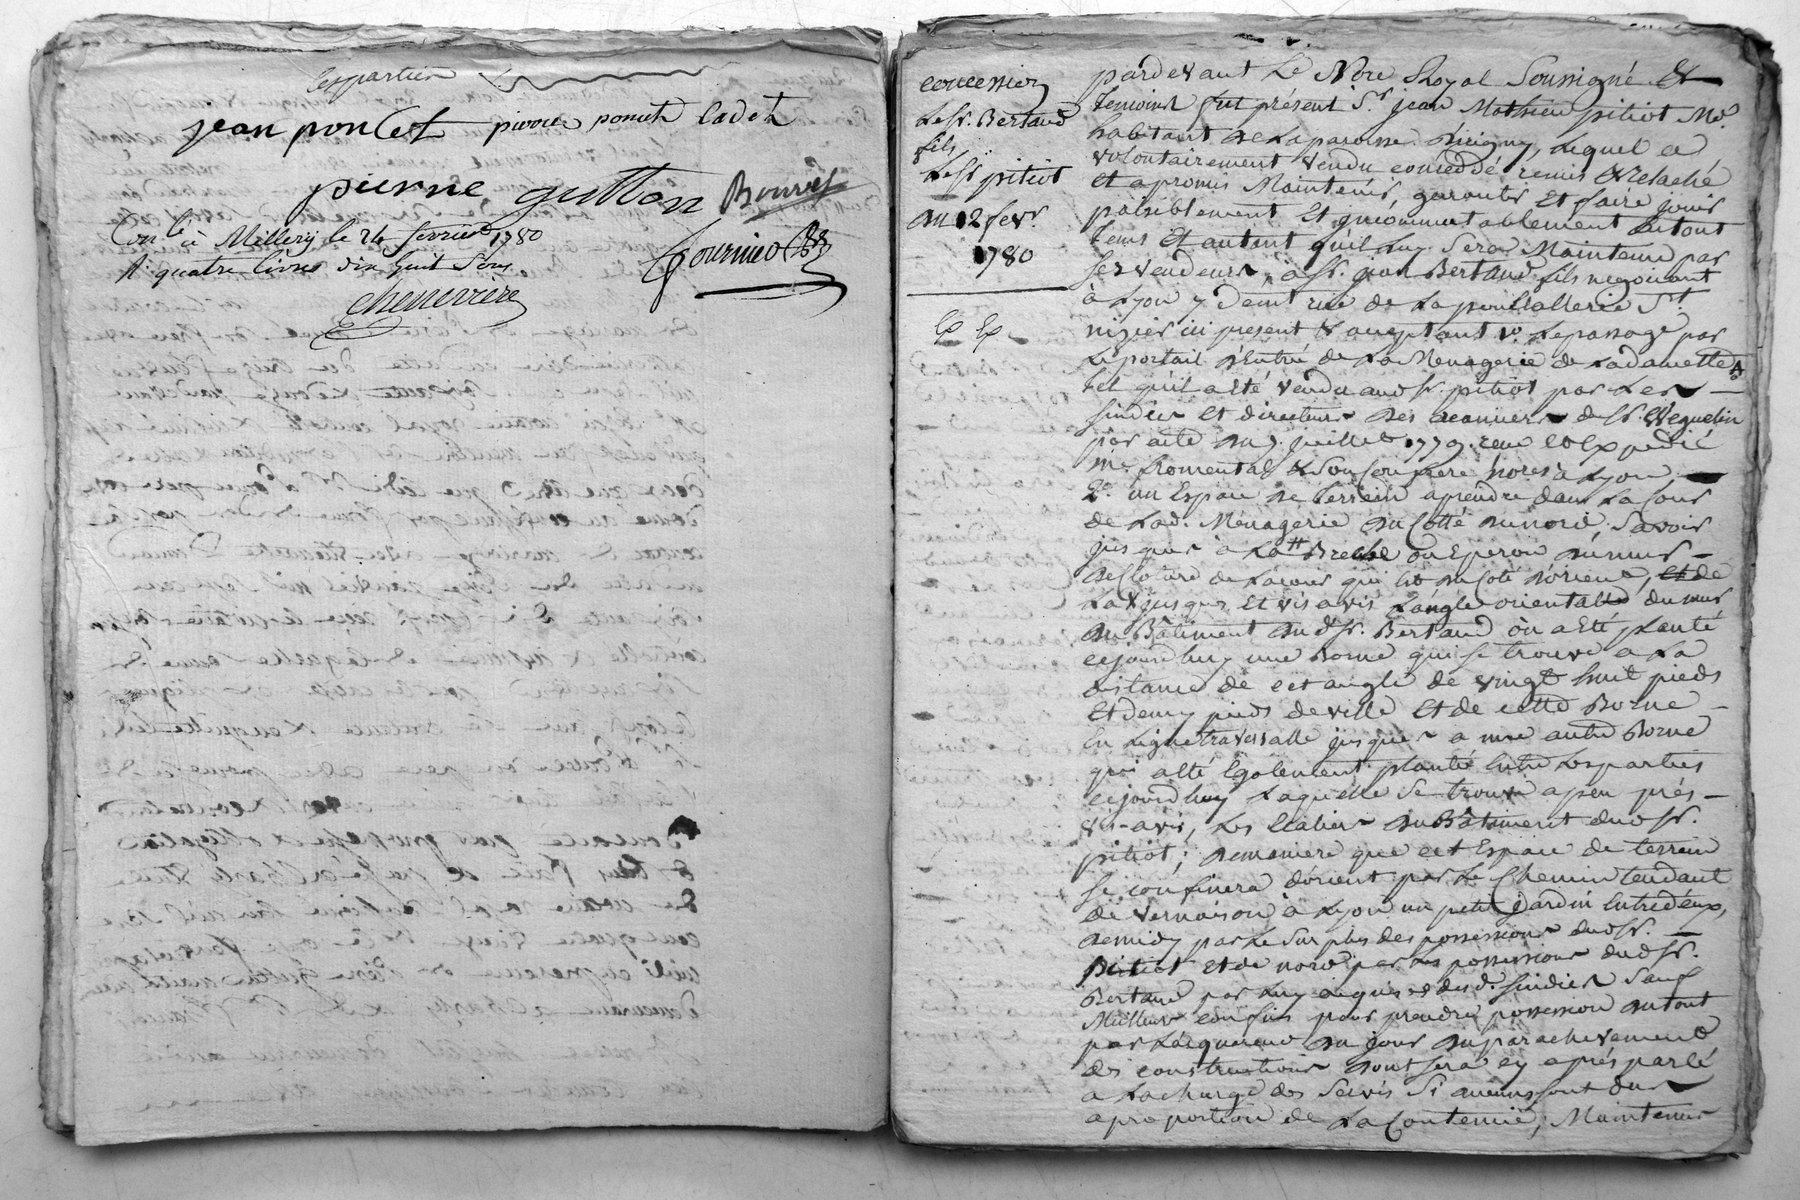 les parties
jean poncet pierre poncet Cadet
pierre gutton Bourret
Con.lé à Millery le 24 fevrier 1780
R. quatre livres dix huit sous
chenevriere
fournier
concession
Le Sr. Bertaud
fils
Le Sr pitiot
du 12 fevr.
1780
Exp Exp
pardevant Le Nore Royal Soussigné Et
temoins fut présent Sr. jean Mathieu pitiot Md.
habitant de La paroisse dirigny, Lequel a
volontairement vendu conceddé remis Et relaché
Et a promis Maintenir, garantir Et faire jouir
paisiblement Et incommutablement Entout
tems Et autant qu'il Luy Sera Maintenu par
ses vendeurs, à Sr. jean Bertaud fils negociant
à Lyon y demt rue de La poullallerie St.
nizier ici present & acceptant 1o. Le passage par
Le portail d'Entrée de La Menagerie de Ladamette
tel qu'il a Eté vendu audSr. pitiot par Les
sindics Et directeurs des creanciers du Sr. Weguelin
par acte du 7. juillet 1779. recu Et Expedié
Me. fromental & Son Confrere Nores à Lyon
2o. un Espace de terrein aprendre dans La Cour
de Lad. Ménagerie du Cotté du nord, Savoir
jusques à La Breche ou Eperon du mur
de Cloture de La cour qui Est du Coté d'orient, Et de
La jusques Et vis avis L'angle oriental du mur
du Bâtiment dudSr. Bertaud où a Eté planté
cejourdhuy une Borne qui se trouve a La
distance de cet angle de vingt huit pieds
Et demy pieds de ville Et de cette Borne
En Ligne traversalle jusques a une autre Borne
qui a Eté Egalement plantée Entre Les parties
cejourdhuy Laquelle Se trouve apeu prés
vis-avis, Les Ecabies du Bâtiment dudSr.
pitiot; demaniere que cet Espace de terrein
Se confinera dorient par Le Chemin tendant
de vernaison à Lyon un petit jardin Entredeux,
demidy par Le Surplus des possessions dudSr.
Pitiot Et de nord par Les possessions dudSr.
Bertaud par Luy acquises desd. sindics Sauf
Meilleurs confins pour prendre possession dutout
par Lacquereur du jour du parachevement
des constructions dont sera cy aprés parlé
a La charge des Servis Si aucuns sont dus
a proportion de La Contenue; Maintenir